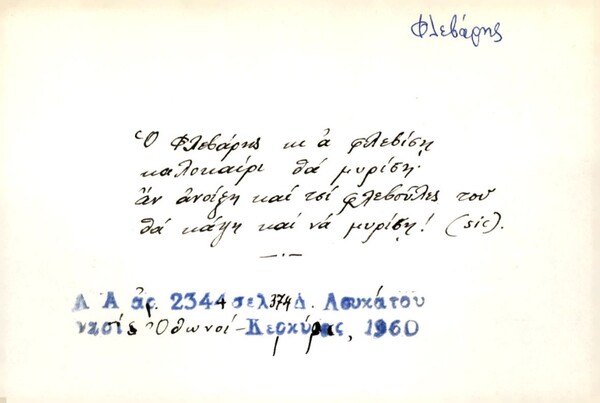 Φλεβάρης
Ὁ Φλεβάρης κι ἀ φλεβίση
καλοκαίρι θά μυρίση.
ἄν ἀνοίξη καί τσί φλεβοῦλες του
θά κάψη καί νά μυρίση! (sic).
Λ Α ἀρ. 2344 σελ 374 Δ. Λουκάτου
νησίς Ὀθωνοί - Κερκύρας, 1960